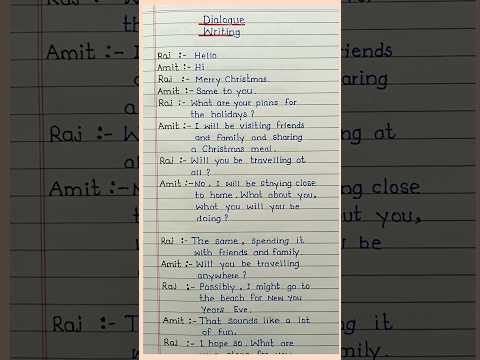 Dialogue
Writing
Raj :- Hello
Amit :- Hi
Raj :- Merry Christmas.
Amit :- Same to you.
Raj :- What are your plans for
the holidays ?
Amit :- I will be visiting friends
and family and sharing
a Christmas meal.
Raj :- Will you be travelling at
all ?
Amit :- No, I will be staying close
to home. What about you,
what you will you be
doing ?
Raj :- The same, spending it
with friends and family.
Amit :- Will you be travelling
anywhere ?
Raj :- Possibly, I might go to
the beach for New You
Years Eve.
Amit :- That sounds like a lot
of fun.
Raj :- I hope so. What are